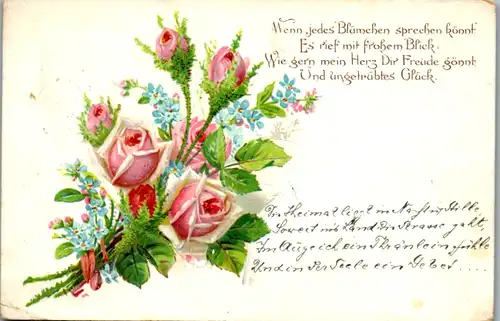 Wenn jedes Blümchen sprechen könnt
Es rief mit frohem Blick:
Wie gern mein Herz Dir Freude gönnt
Und ungetrübtes Glück.
In Heimat liegt in Nacht u. Stille
Soweit ins Land die geht,
Im Aug' ein Thränlein fühle
Und in der Seele ein Gebet . . . .